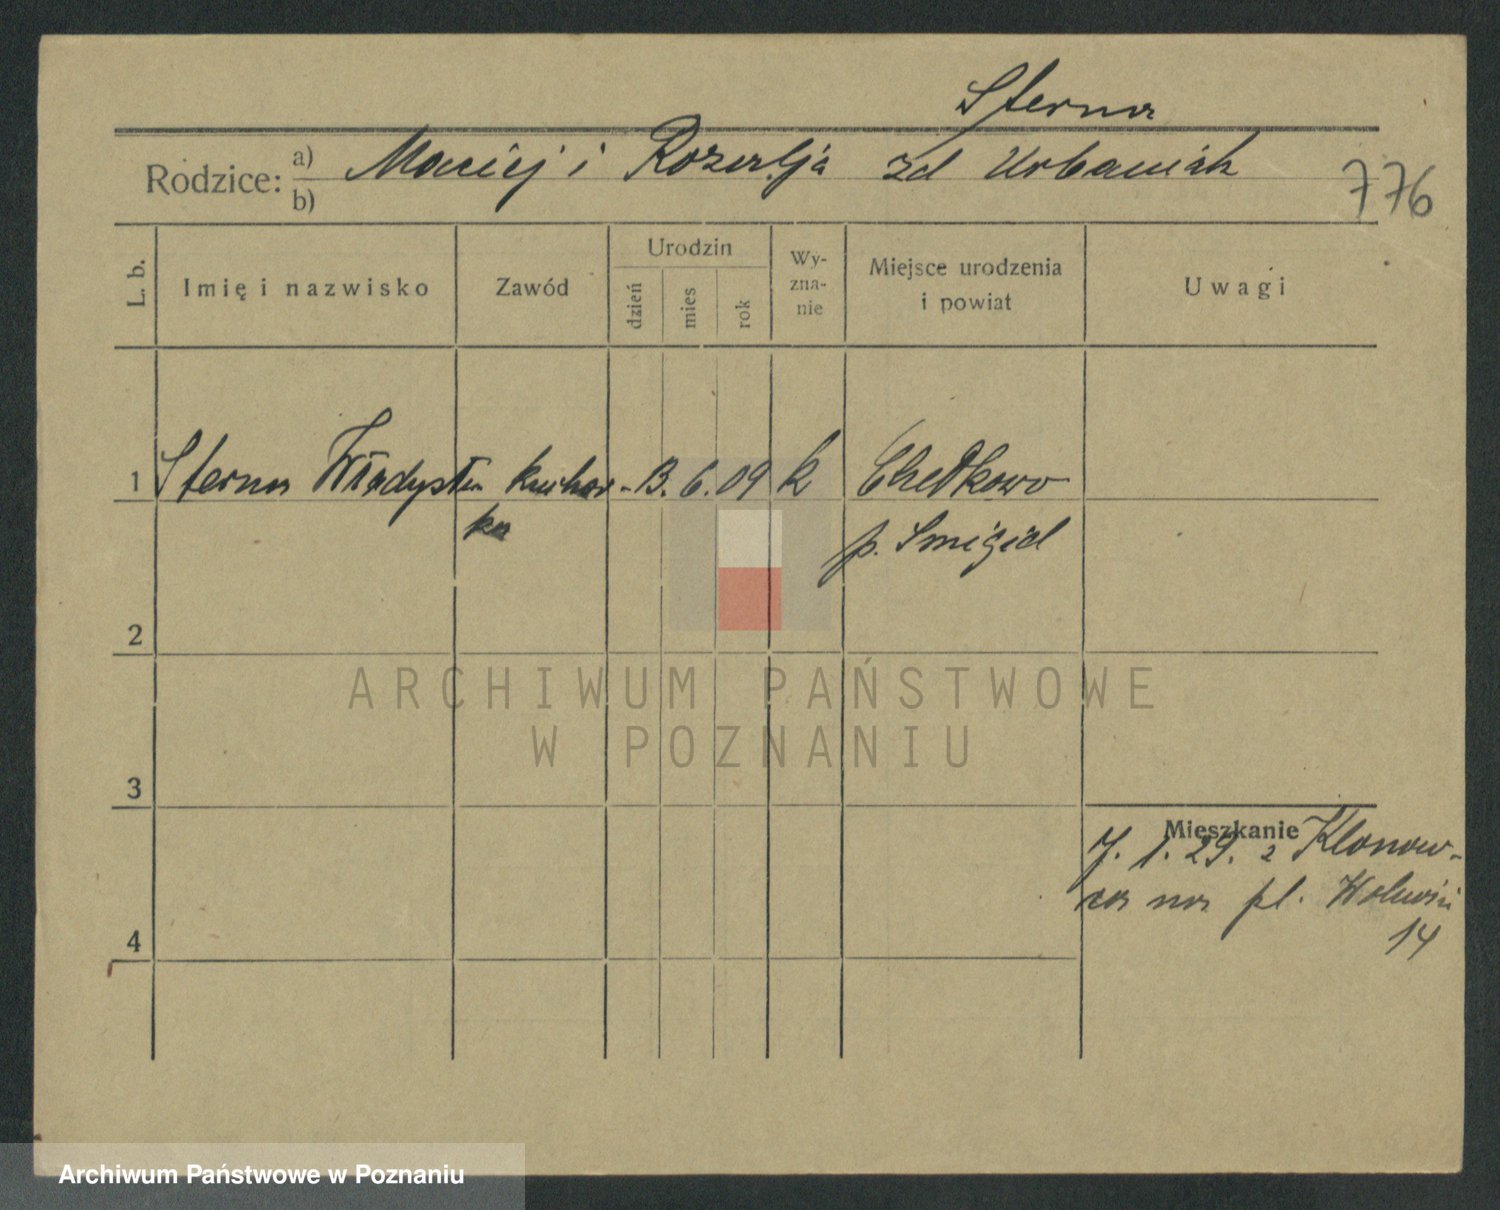 Sterna
Rodzice: a) Maciej i Rozalja zd Urbaniak
b)
776
L. b.
Imię i nazwisko
Zawód
Urodzin
dzień
mies
rok
Wy-
zna-
nie
Miejsce urodzenia
i powiat
Uwagi
1 Sterna Władysła kuchar- 13. 6. 09 k Chełkowo
ka p. Śmigiel
2
ARCHIWUM PAŃSTWOWE
W POZNANIU
3
Mieszkanie
7. 1. 29. z Klonow-
na pl.
14
4
Archiwum Państwowe w Poznaniu